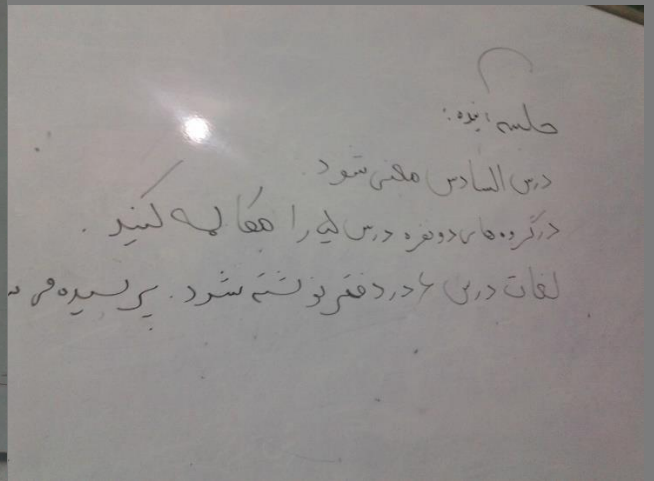 جلسه آینده:
درس السادس معنی شود.
در گروه های دو نفره درس را مکالمه کنید.
لغات درس ۶ در دفتر نوشته شود. پرسیده می